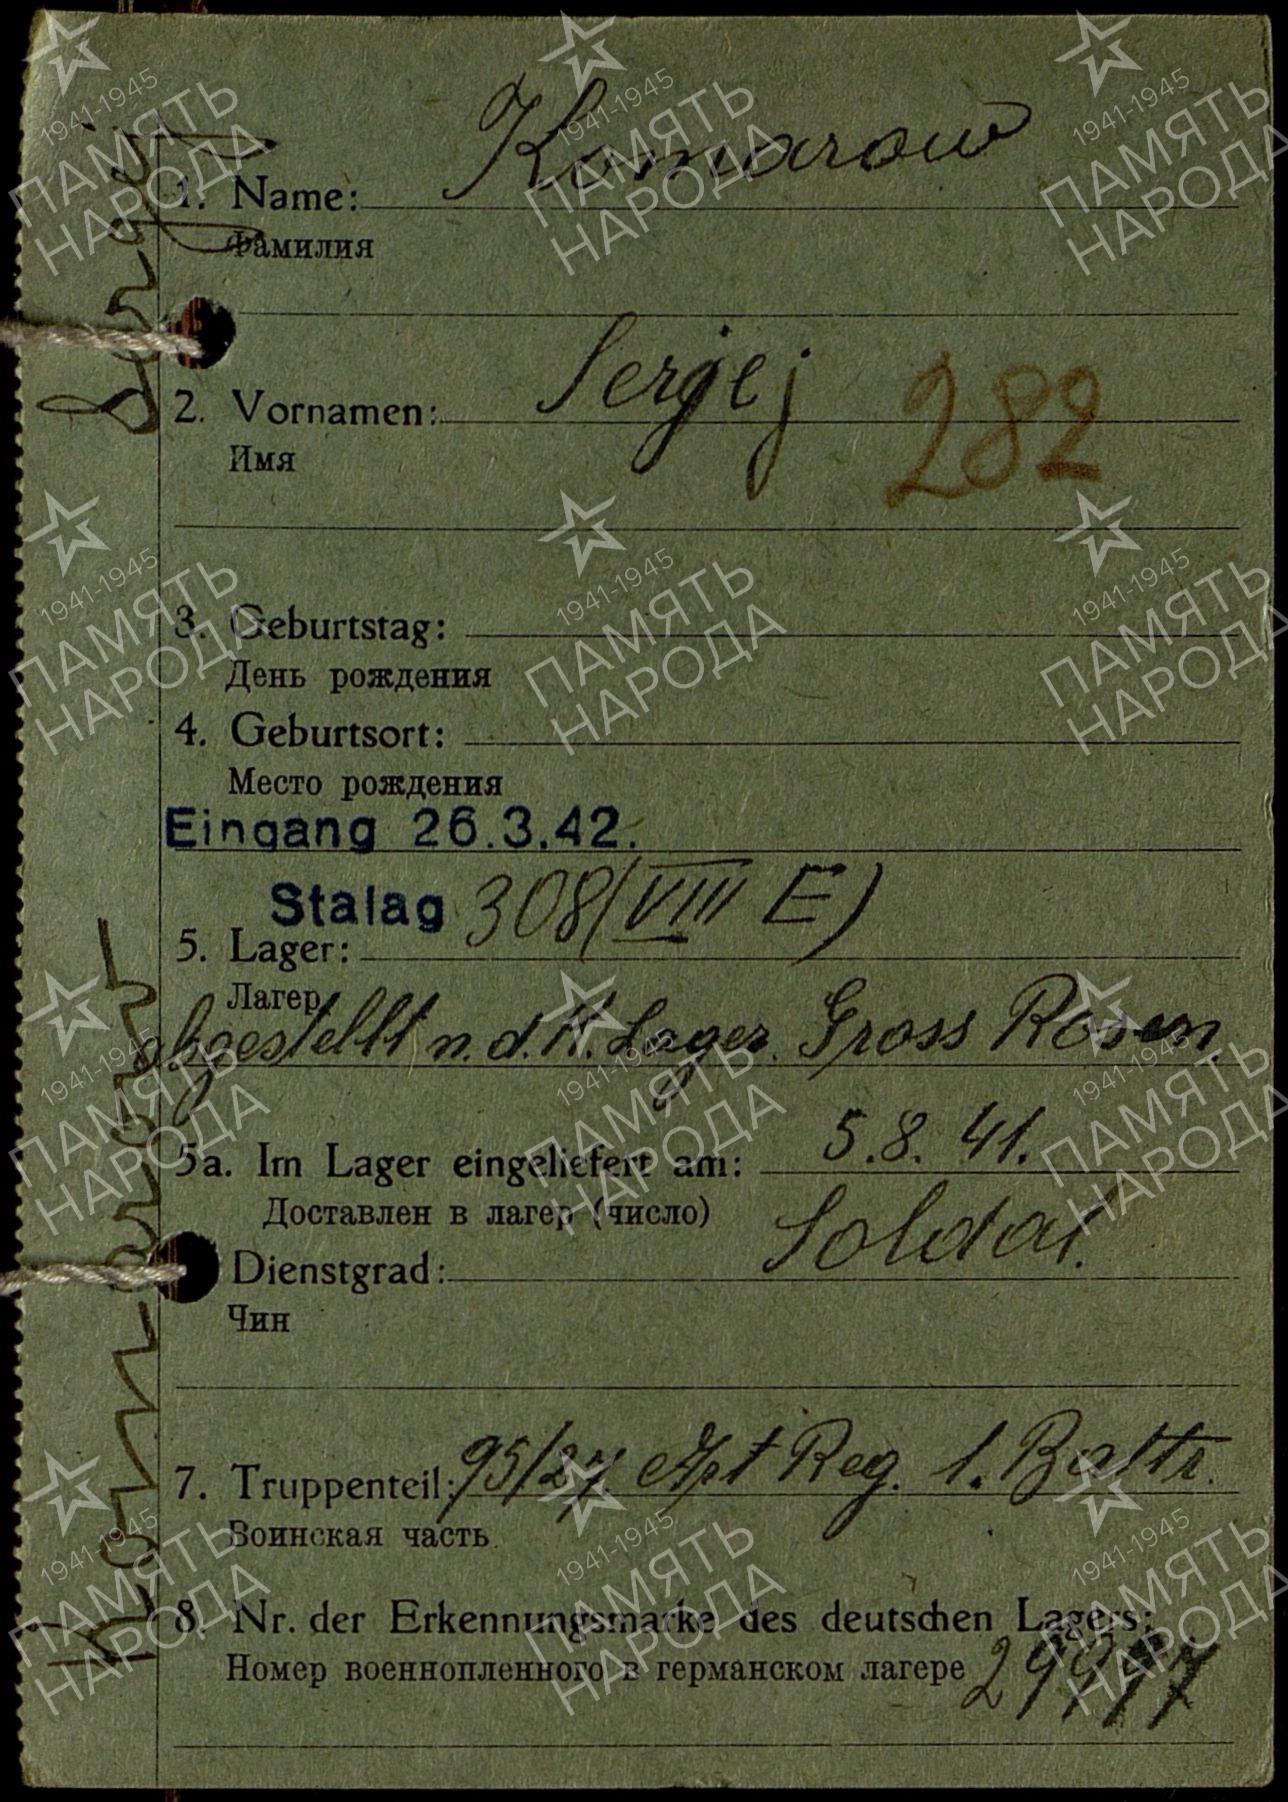 Komarow
1. Name:
Фамилия
Sergej
282
2. Vornamen:
Имя
3. Geburtstag:
День рождения
4. Geburtsort:
Место рождения
Eingang 26.3.42.
Stalag 308 (VIII E)
5. Lager:
Лагер
abgestellt n. d. K. Lager. Gross Rosen.
5a. Im Lager eingeliefert am: 5.8.41.
Доставлен в лагер (число)
Soldat.
Dienstgrad:
Чин
7. Truppenteil: 95/27 Reg. 1. Battr.
Воинская часть
8. Nr. der Erkennungsmarke des deutschen Lagers:
Номер военнопленного в германском лагере 29997
Komarow Sergej
1941-1945
ПАМЯТЬ
НАРОДА